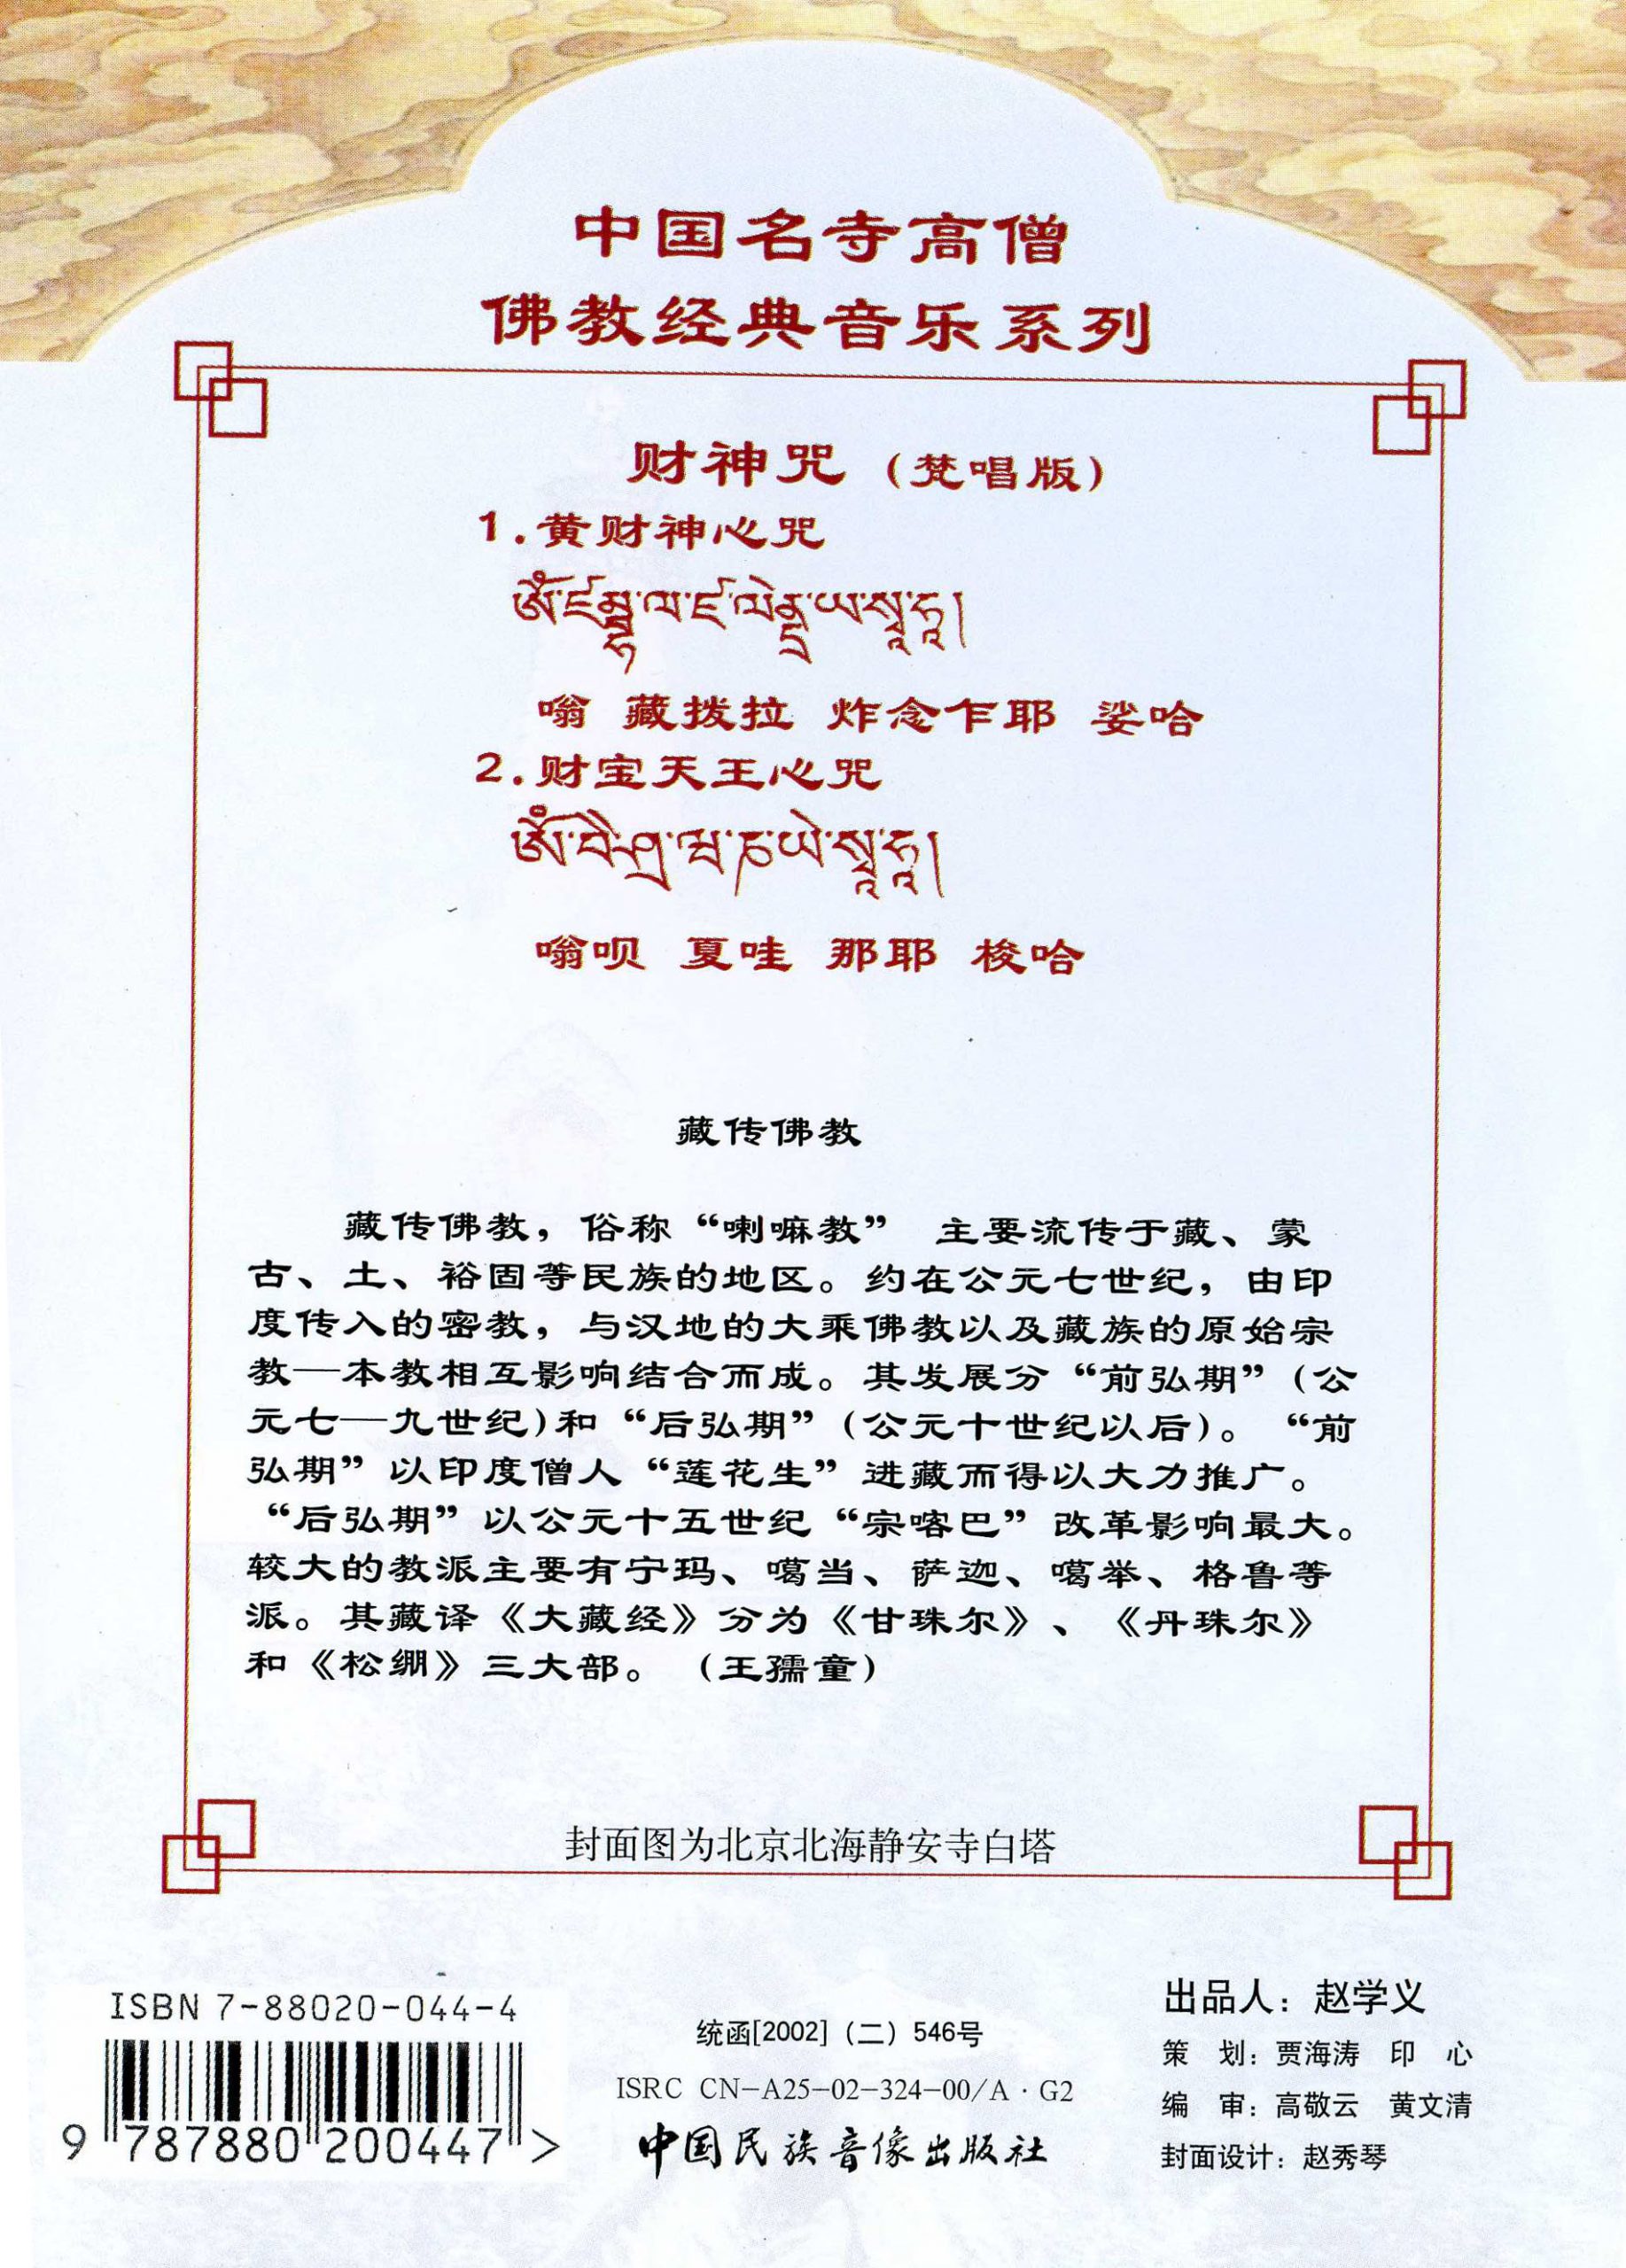 中国名寺高僧
佛教经典音乐系列
财神咒（梵唱版）
1.黄财神心咒
ཨོཾ་ཛམྦྷ་ལ་ཛ་ལེནྡྲ་ཡ་སྭཱ་ཧཱ།
嗡 藏拨拉 炸念乍耶 娑哈
2.财宝天王心咒
ཨོཾ་བཻ་ཤྲ་མ་ཎ་ཡེ་སྭཱ་ཧཱ།
嗡呗 夏哇 那耶 梭哈
藏传佛教
藏传佛教，俗称“喇嘛教” 主要流传于藏、蒙
古、土、裕固等民族的地区。约在公元七世纪，由印
度传入的密教，与汉地的大乘佛教以及藏族的原始宗
教—本教相互影响结合而成。其发展分“前弘期”（公
元七—九世纪）和“后弘期”（公元十世纪以后）。“前
弘期”以印度僧人“莲花生”进藏而得以大力推广。
“后弘期”以公元十五世纪“宗喀巴”改革影响最大。
较大的教派主要有宁玛、噶当、萨迦、噶举、格鲁等
派。其藏译《大藏经》分为《甘珠尔》、《丹珠尔》
和《松绷》三大部。（王孺童）
封面图为北京北海静安寺白塔
ISBN 7-88020-044-4
9 787880 200447 >
统函[2002]（二）546号
ISRC CN-A25-02-324-00/A·G2
中国民族音像出版社
出品人：赵学义
策 划：贾海涛 印 心
编 审：高敬云 黄文清
封面设计：赵秀琴